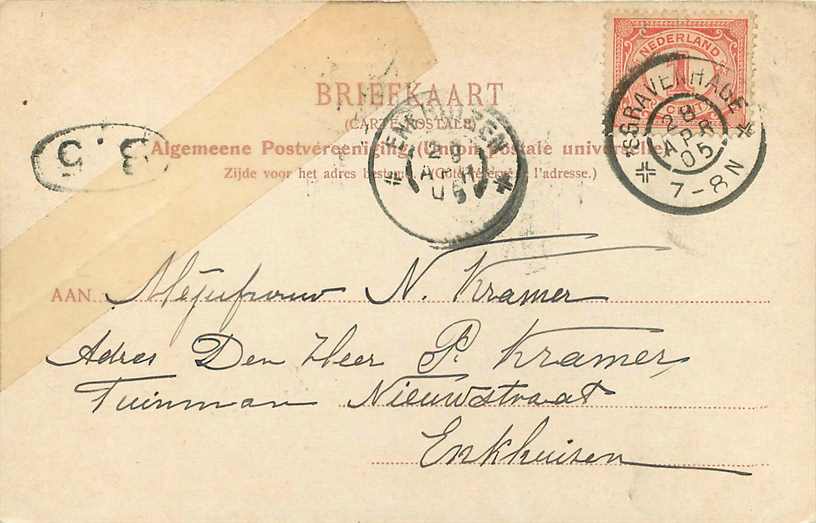 NEDERLAND
1
CENT
'SGRAVENHAGE
28
APR
05
7-8N
BRIEFKAART
(CARTE POSTALE)
ENKHUIZEN
28
05
3.5
Algemeene Postvereeniging (Union postale universelle)
Zijde voor het adres bestemd. (Côté réservé à l'adresse.)
AAN Mejufrouw N. Kramer
Adres Den Heer P. Kramer,
Tuinman Nieuwstraat
Enkhuisen